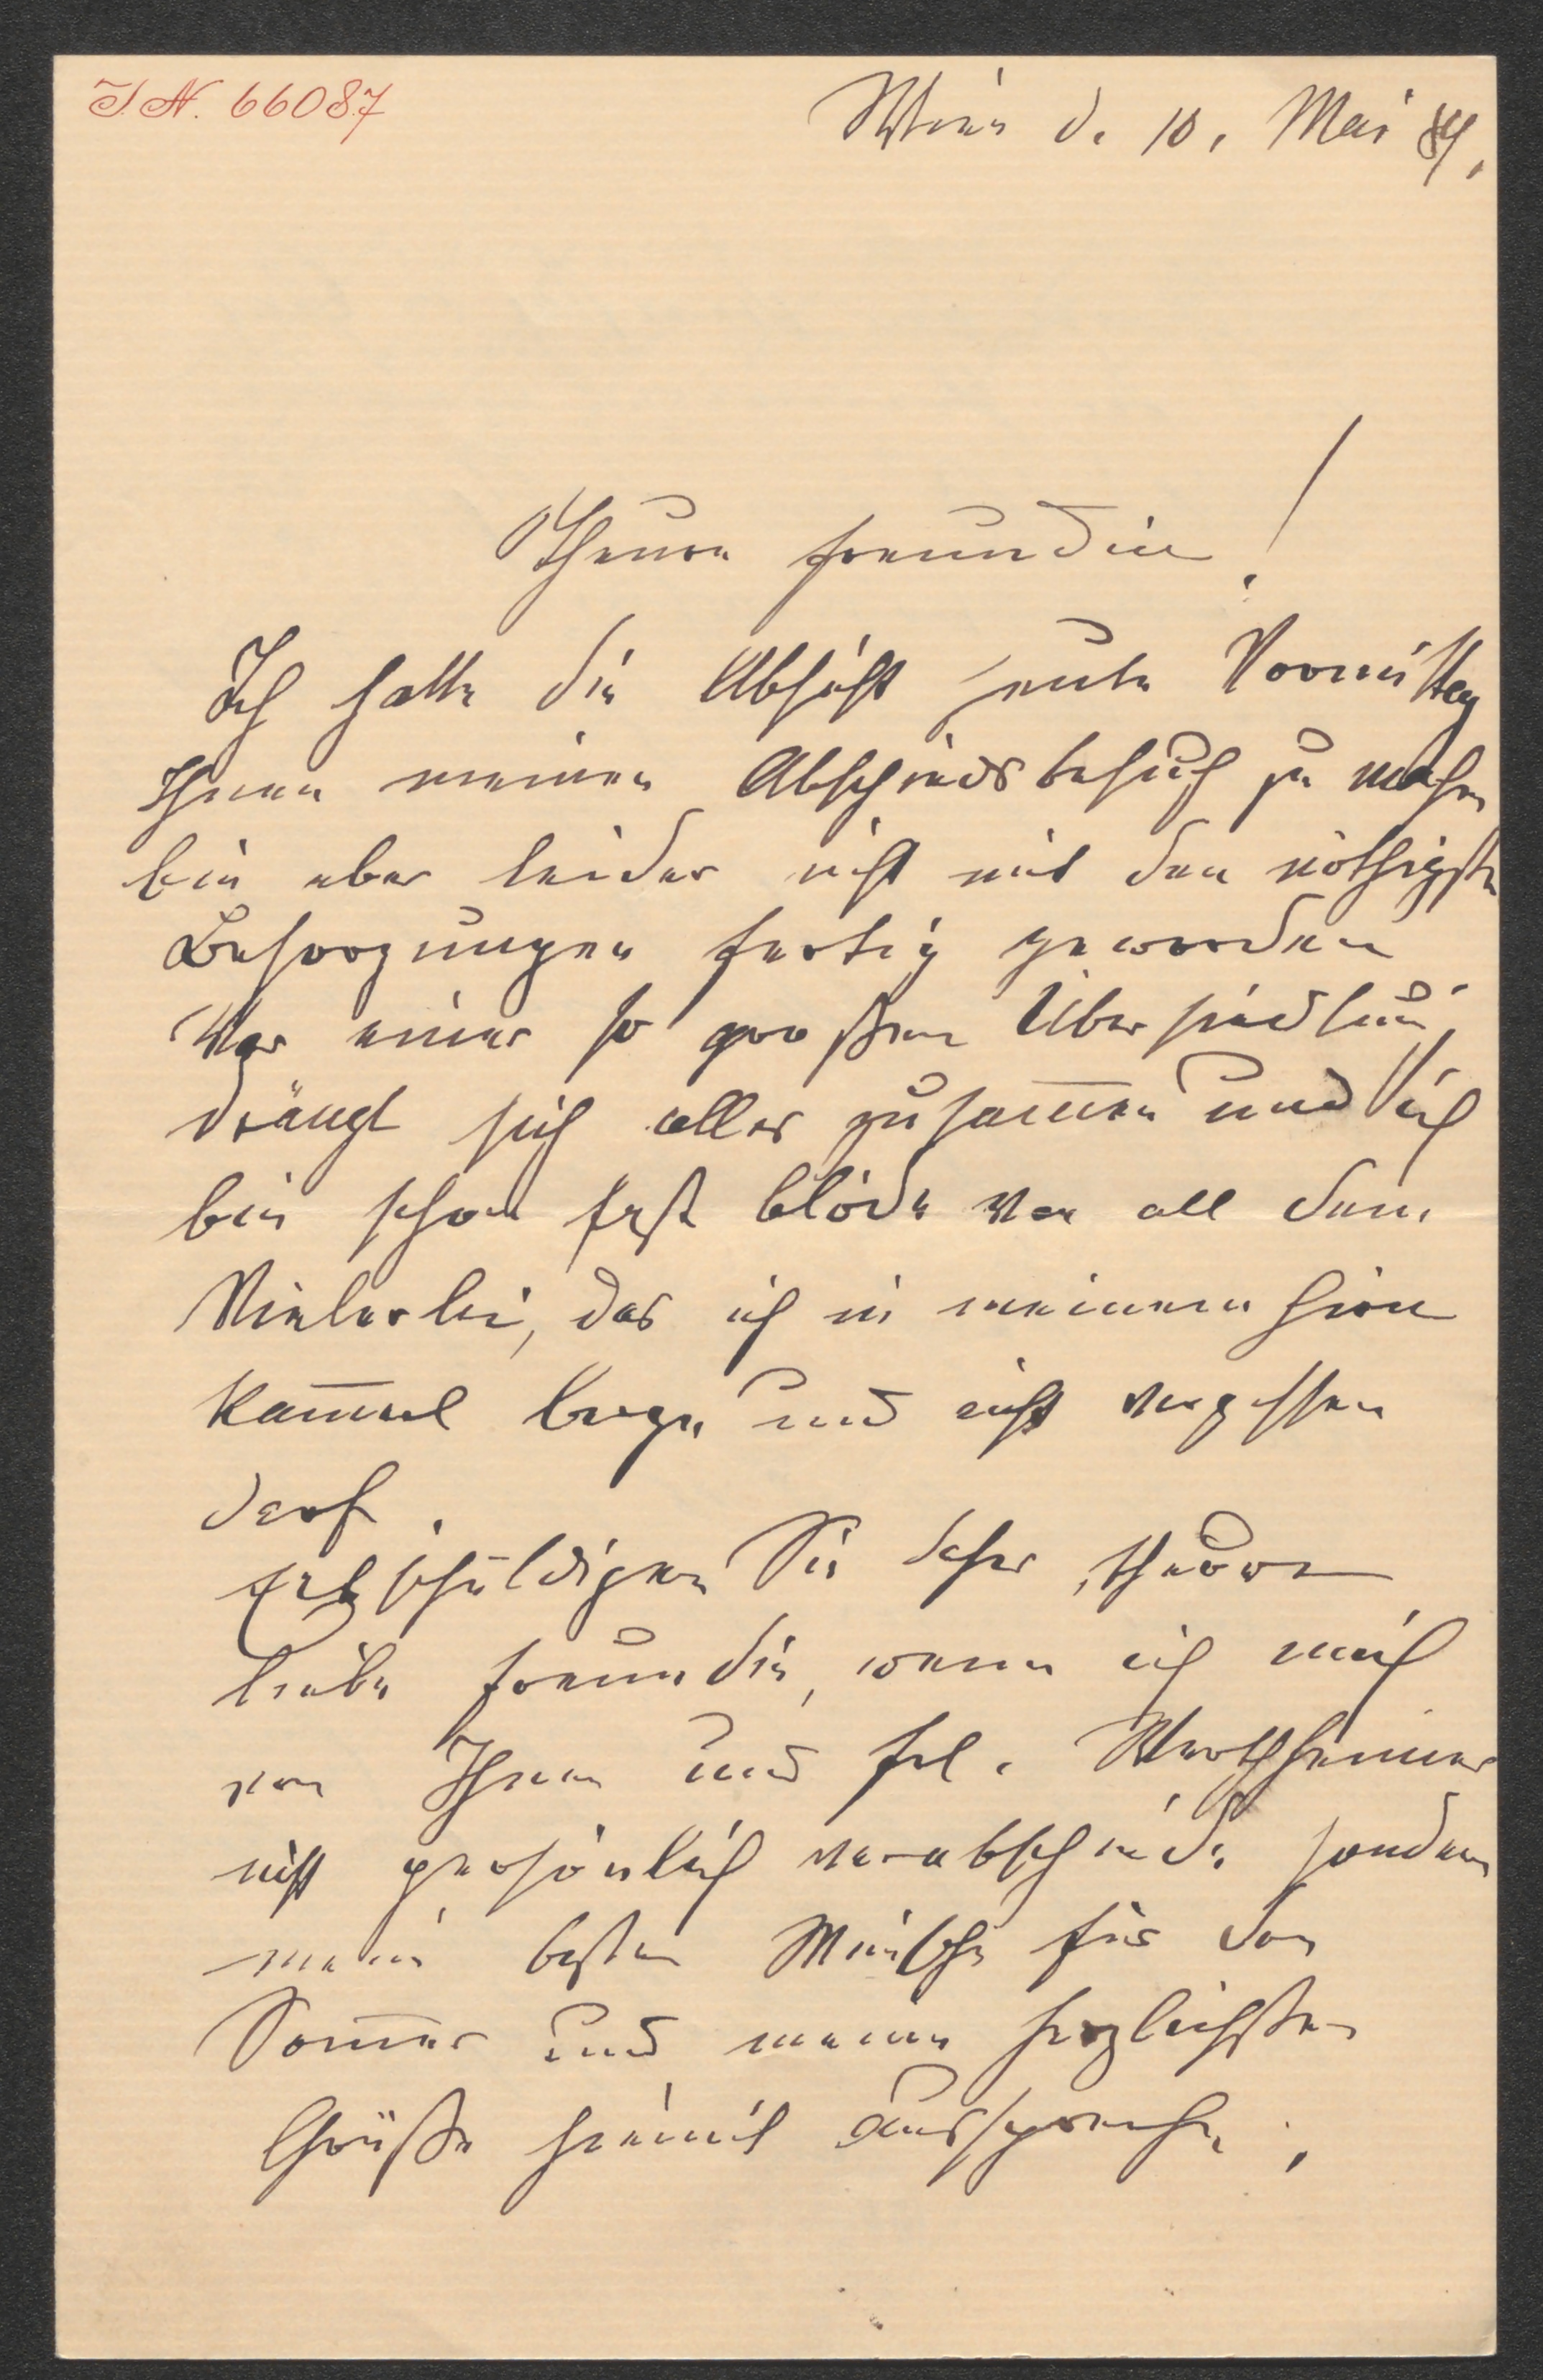 I.N. 66087
Wien d. 10. Mai 84.
Theure Freundin!
Ich hatte die Absicht heute Vormittag
Ihnen meinen Abschiedsbesuch zu machen
bin aber leider nicht mit den nöthigsten
Besorgungen fertig geworden
Vor einer so großen Übersiedlung
drängt sich alles zusammen und ich
bin schon fast blöde von all dem
Vielerlei, das ich in meinem Hirn
Kammerl berge und nicht vergessen
darf.
Entschuldigen Sie daher, theure
liebe Freundin, wenn ich mich
von Ihnen und Frl. Wertheimer
nicht persönlich verabschiede sondern
meine besten Wünsche für den
Sommer und meine herzlichsten
Grüße hiemit ausspreche.